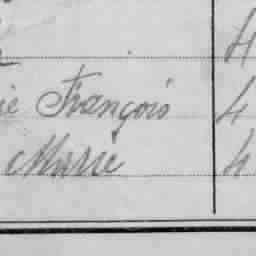 4
ie François 4
Marie 4